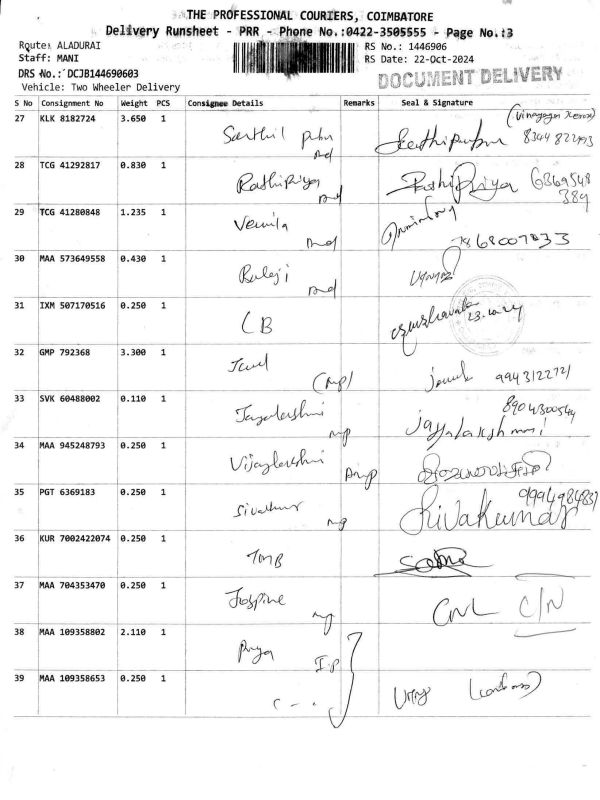 THE PROFESSIONAL COURIERS, COIMBATORE
Delivery Runsheet - PRR - Phone No.:0422-3505555 - Page No.:3
Route: ALADURAI
RS No.: 1446906
Staff: MANI
RS Date: 22-Oct-2024
DRS No.: DCJB144690603
DOCUMENT DELIVERY
Vehicle: Two Wheeler Delivery
S No Consignment No Weight PCS Consignee Details Remarks Seal & Signature
27 KLK 8182724 3.650 1 Senthil
28 TCG 41292817 0.830 1 RathiPriya RathiPriya 6369548
389
29 TCG 41280848 1.235 1 Vennila 7868007833
30 MAA 573649558 0.430 1 Balaji
31 IXM 507170516 0.250 1 CB 23.10.24
32 GMP 792368 3.300 1 9943122721
33 SVK 60488002 0.110 1 Jayalakshmi 8904300544
jayalakshmmi
34 MAA 945248793 0.250 1 Vijaylakshmi
35 PGT 6369183 0.250 1 Sivakumar 9994984837
Sivakumar
36 KUR 7002422074 0.250 1 TMB
37 MAA 704353470 0.250 1 C/N
38 MAA 109358802 2.110 1 Priya
39 MAA 109358653 0.250 1